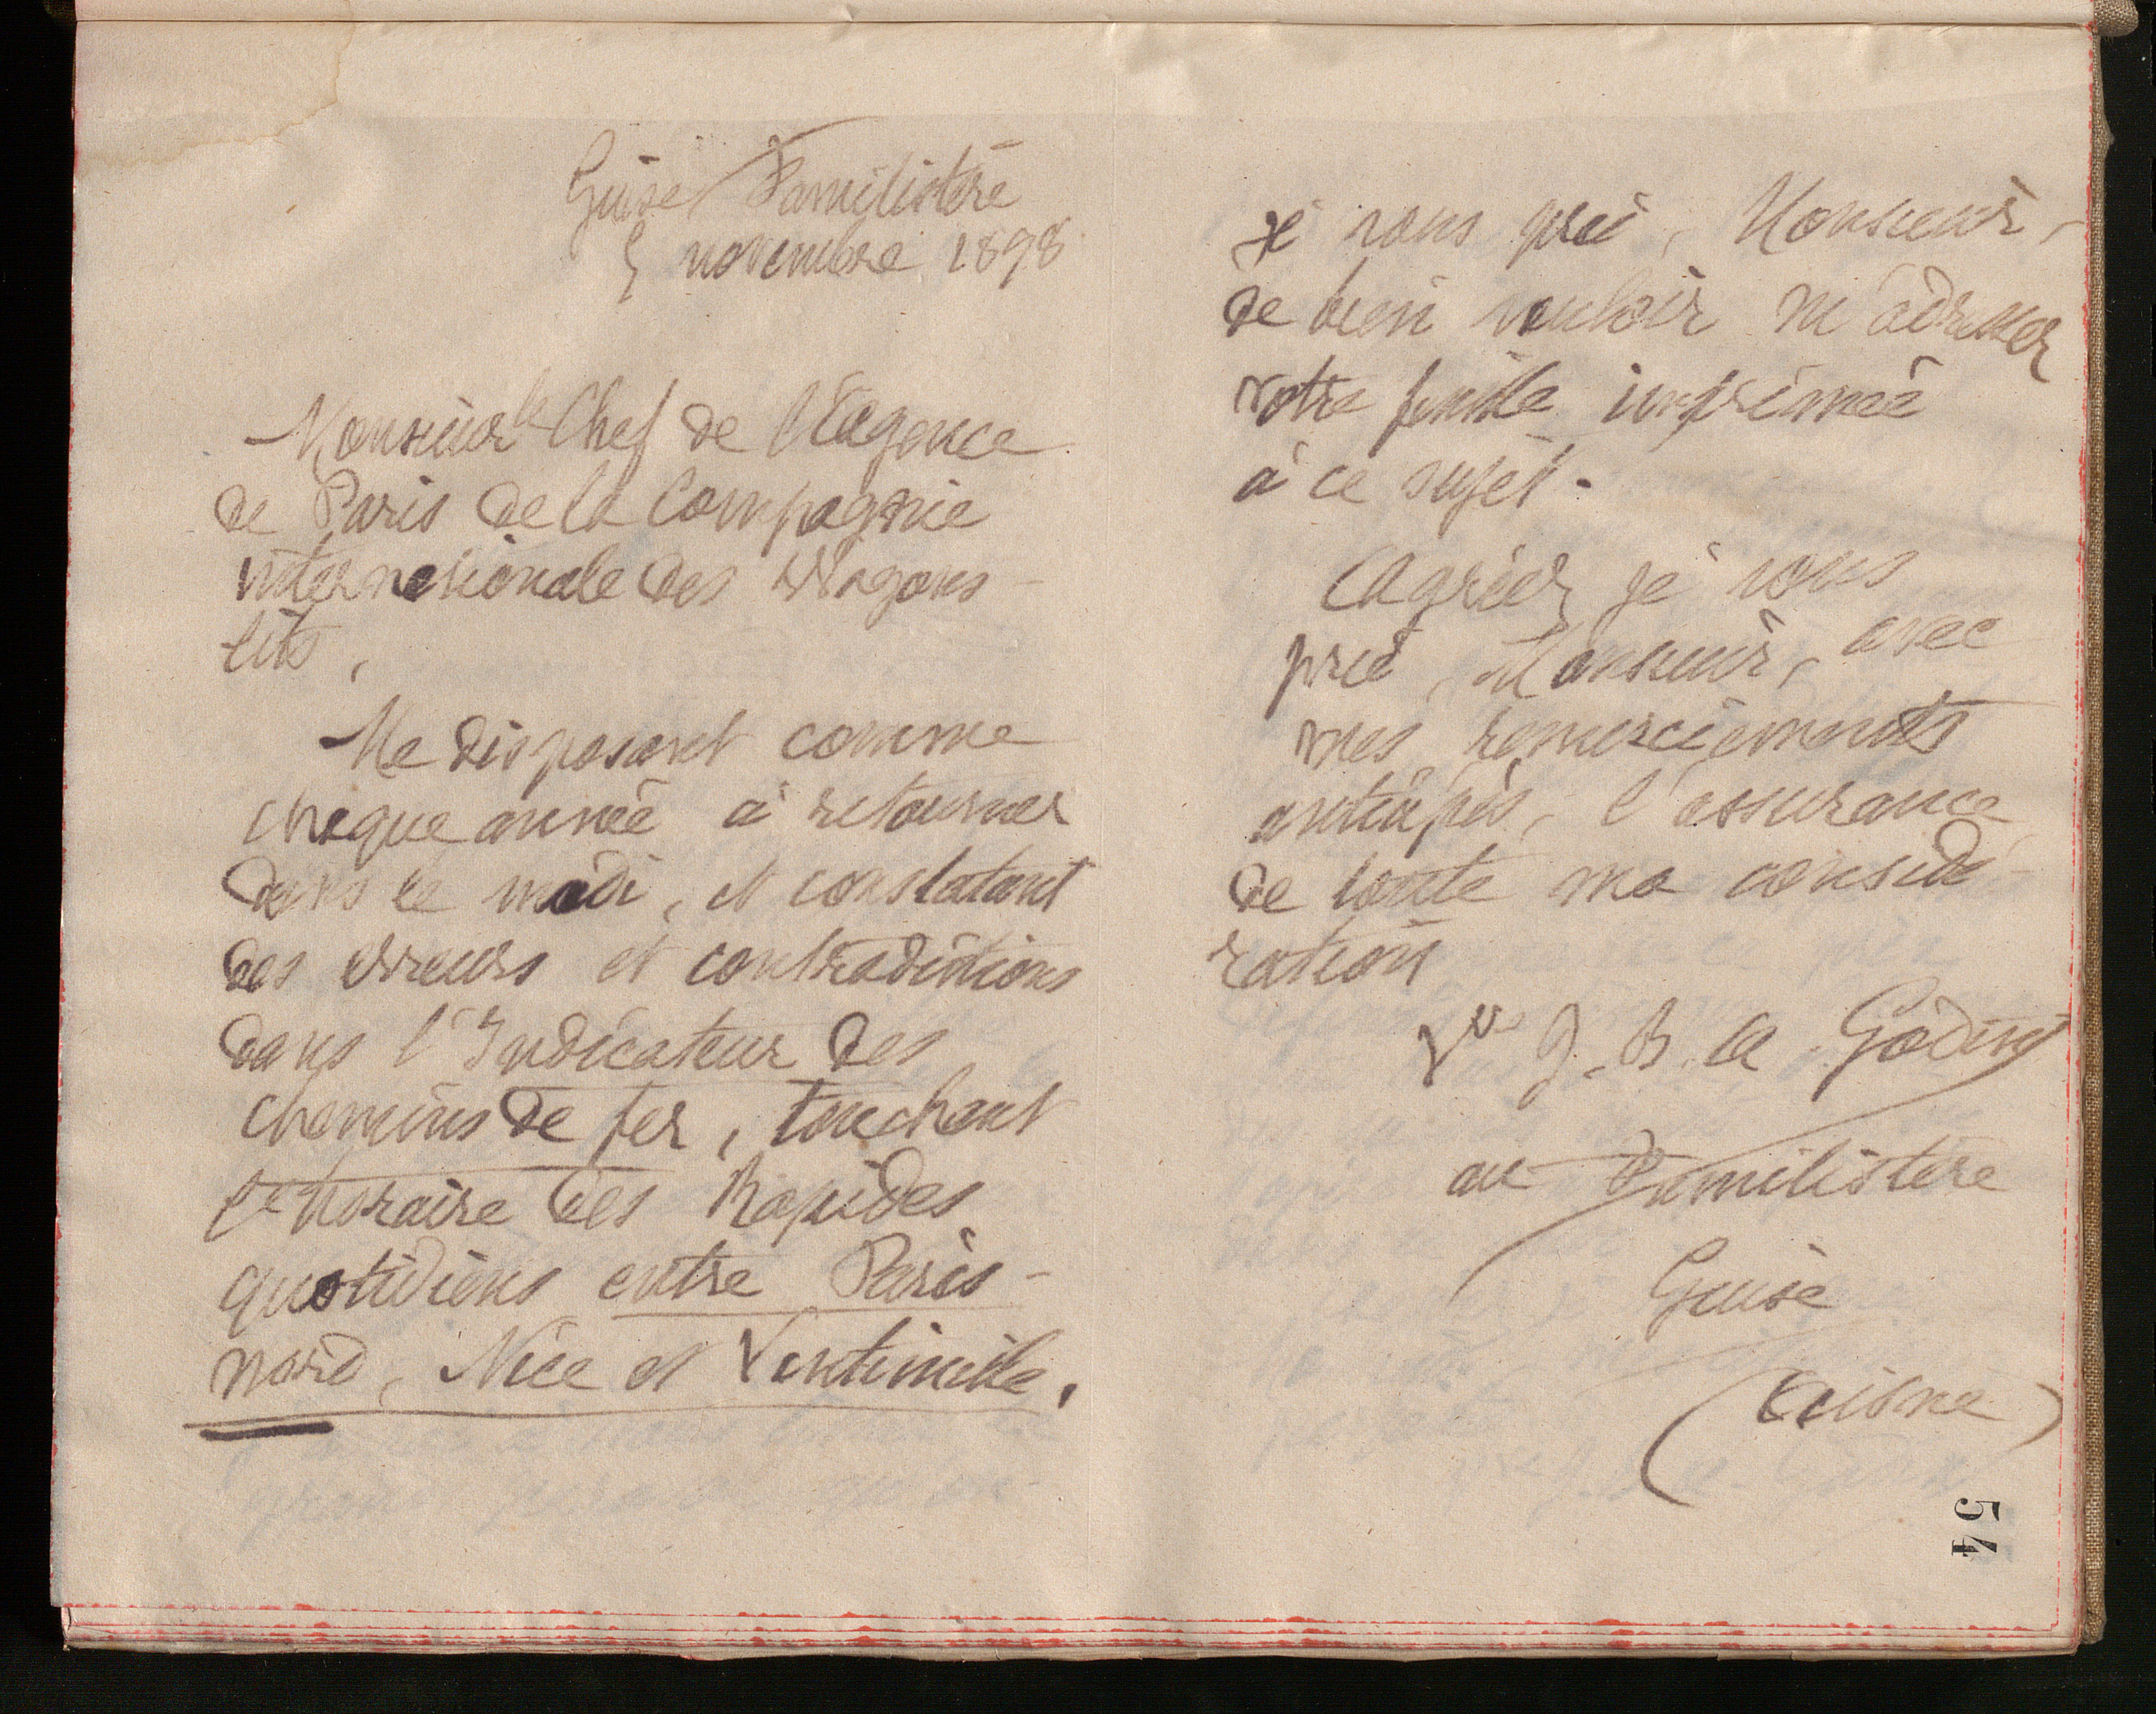 Guise Familistère
5 novembre 1898
Monsieur le Chef de l'Agence
de Paris de la Compagnie
internationale des Wagons-
lits,
Me disposant comme
chaque année à retourner
dans le midi, et constatant
des erreurs et contradictions
dans l'Indicateur des
chemins de fer, touchant
l'horaire des Rapides
quotidiens entre Paris-
nord, Nice et Vintimille,
je vous prie, Monsieur,
de bien vouloir m'adresser
votre feuille imprimée
à ce sujet.
Agréez je vous
prie, Monsieur, avec
mes remerciements
anticipés, l'assurance
de toute ma considé-
ration
Vve J.-B. A. Godin
au Familistère
Guise
(Aisne)
54